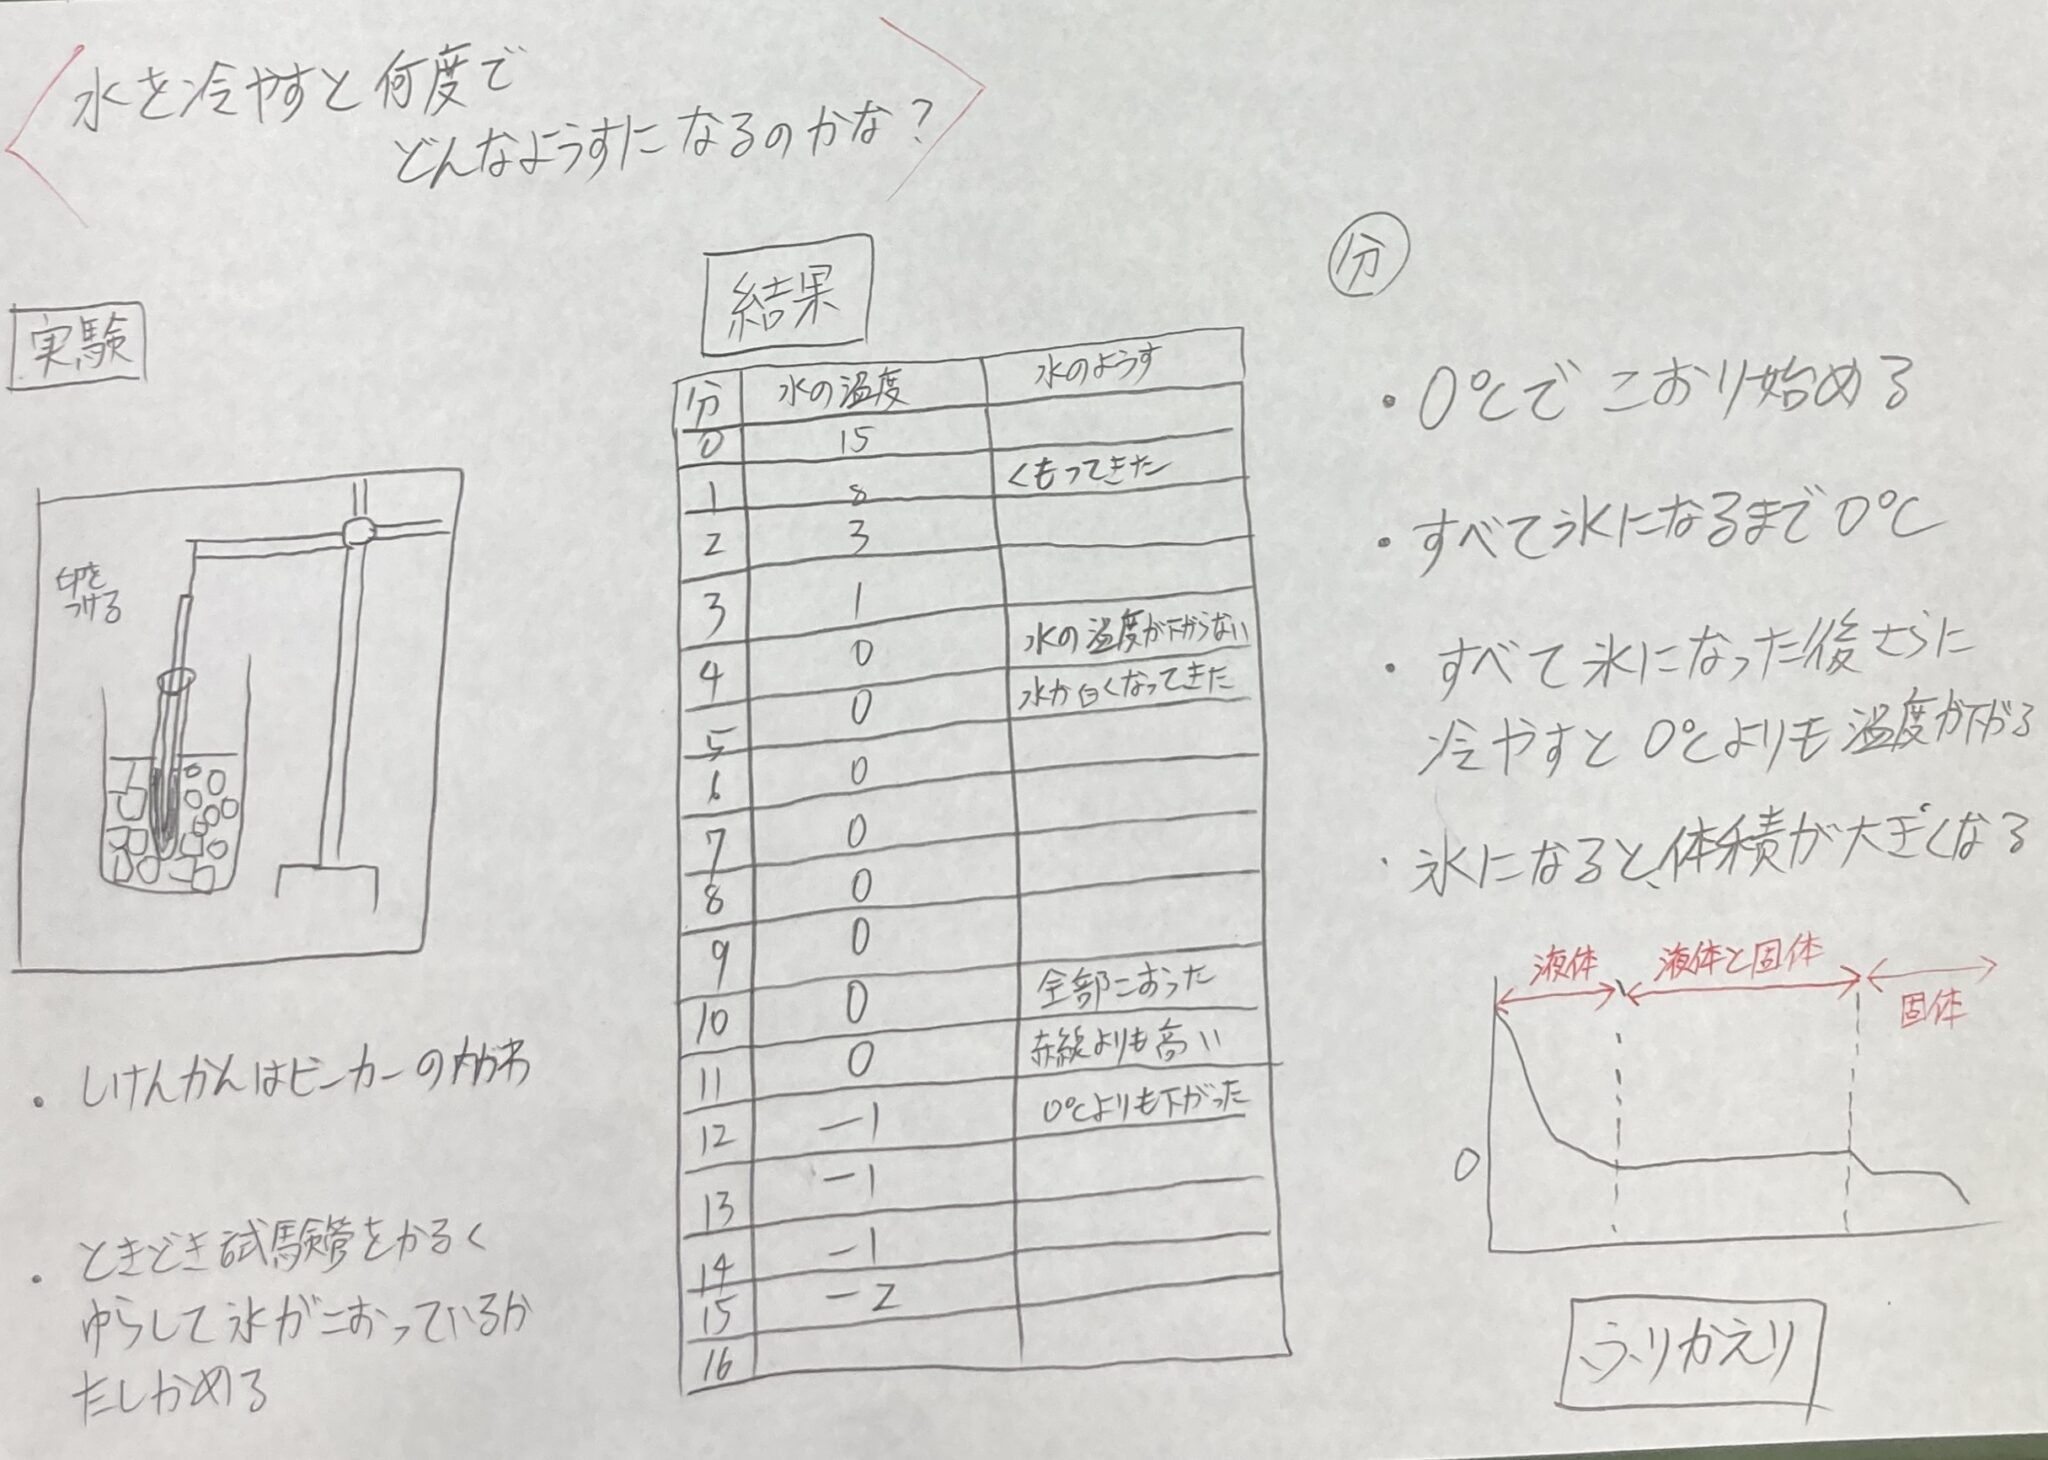 水を冷やすと何度で
どんなようすになるのかな?
実験
印を
つける
・しけんかんはビーカーの
・ときどき試験管をかるく
ゆらして氷がこおっているか
たしかめる
結果
分 水の温度 水のようす
0 15
1 8 くもってきた
2 3
3 1
4 0 水の温度が下がらない
5 0 水が白くなってきた
6 0
7 0
8 0
9 0
10 0 全部こおった
11 0 赤線よりも高い
12 -1 0℃よりも下がった
13 -1
14 -1
15 -2
16
分
・0℃でこおり始める
・すべて氷になるまで0℃
・すべて氷になった後さらに
冷やすと0℃よりも温度が下がる
・氷になると、体積が大きくなる
液体 液体と固体
固体
0
ふりかえり